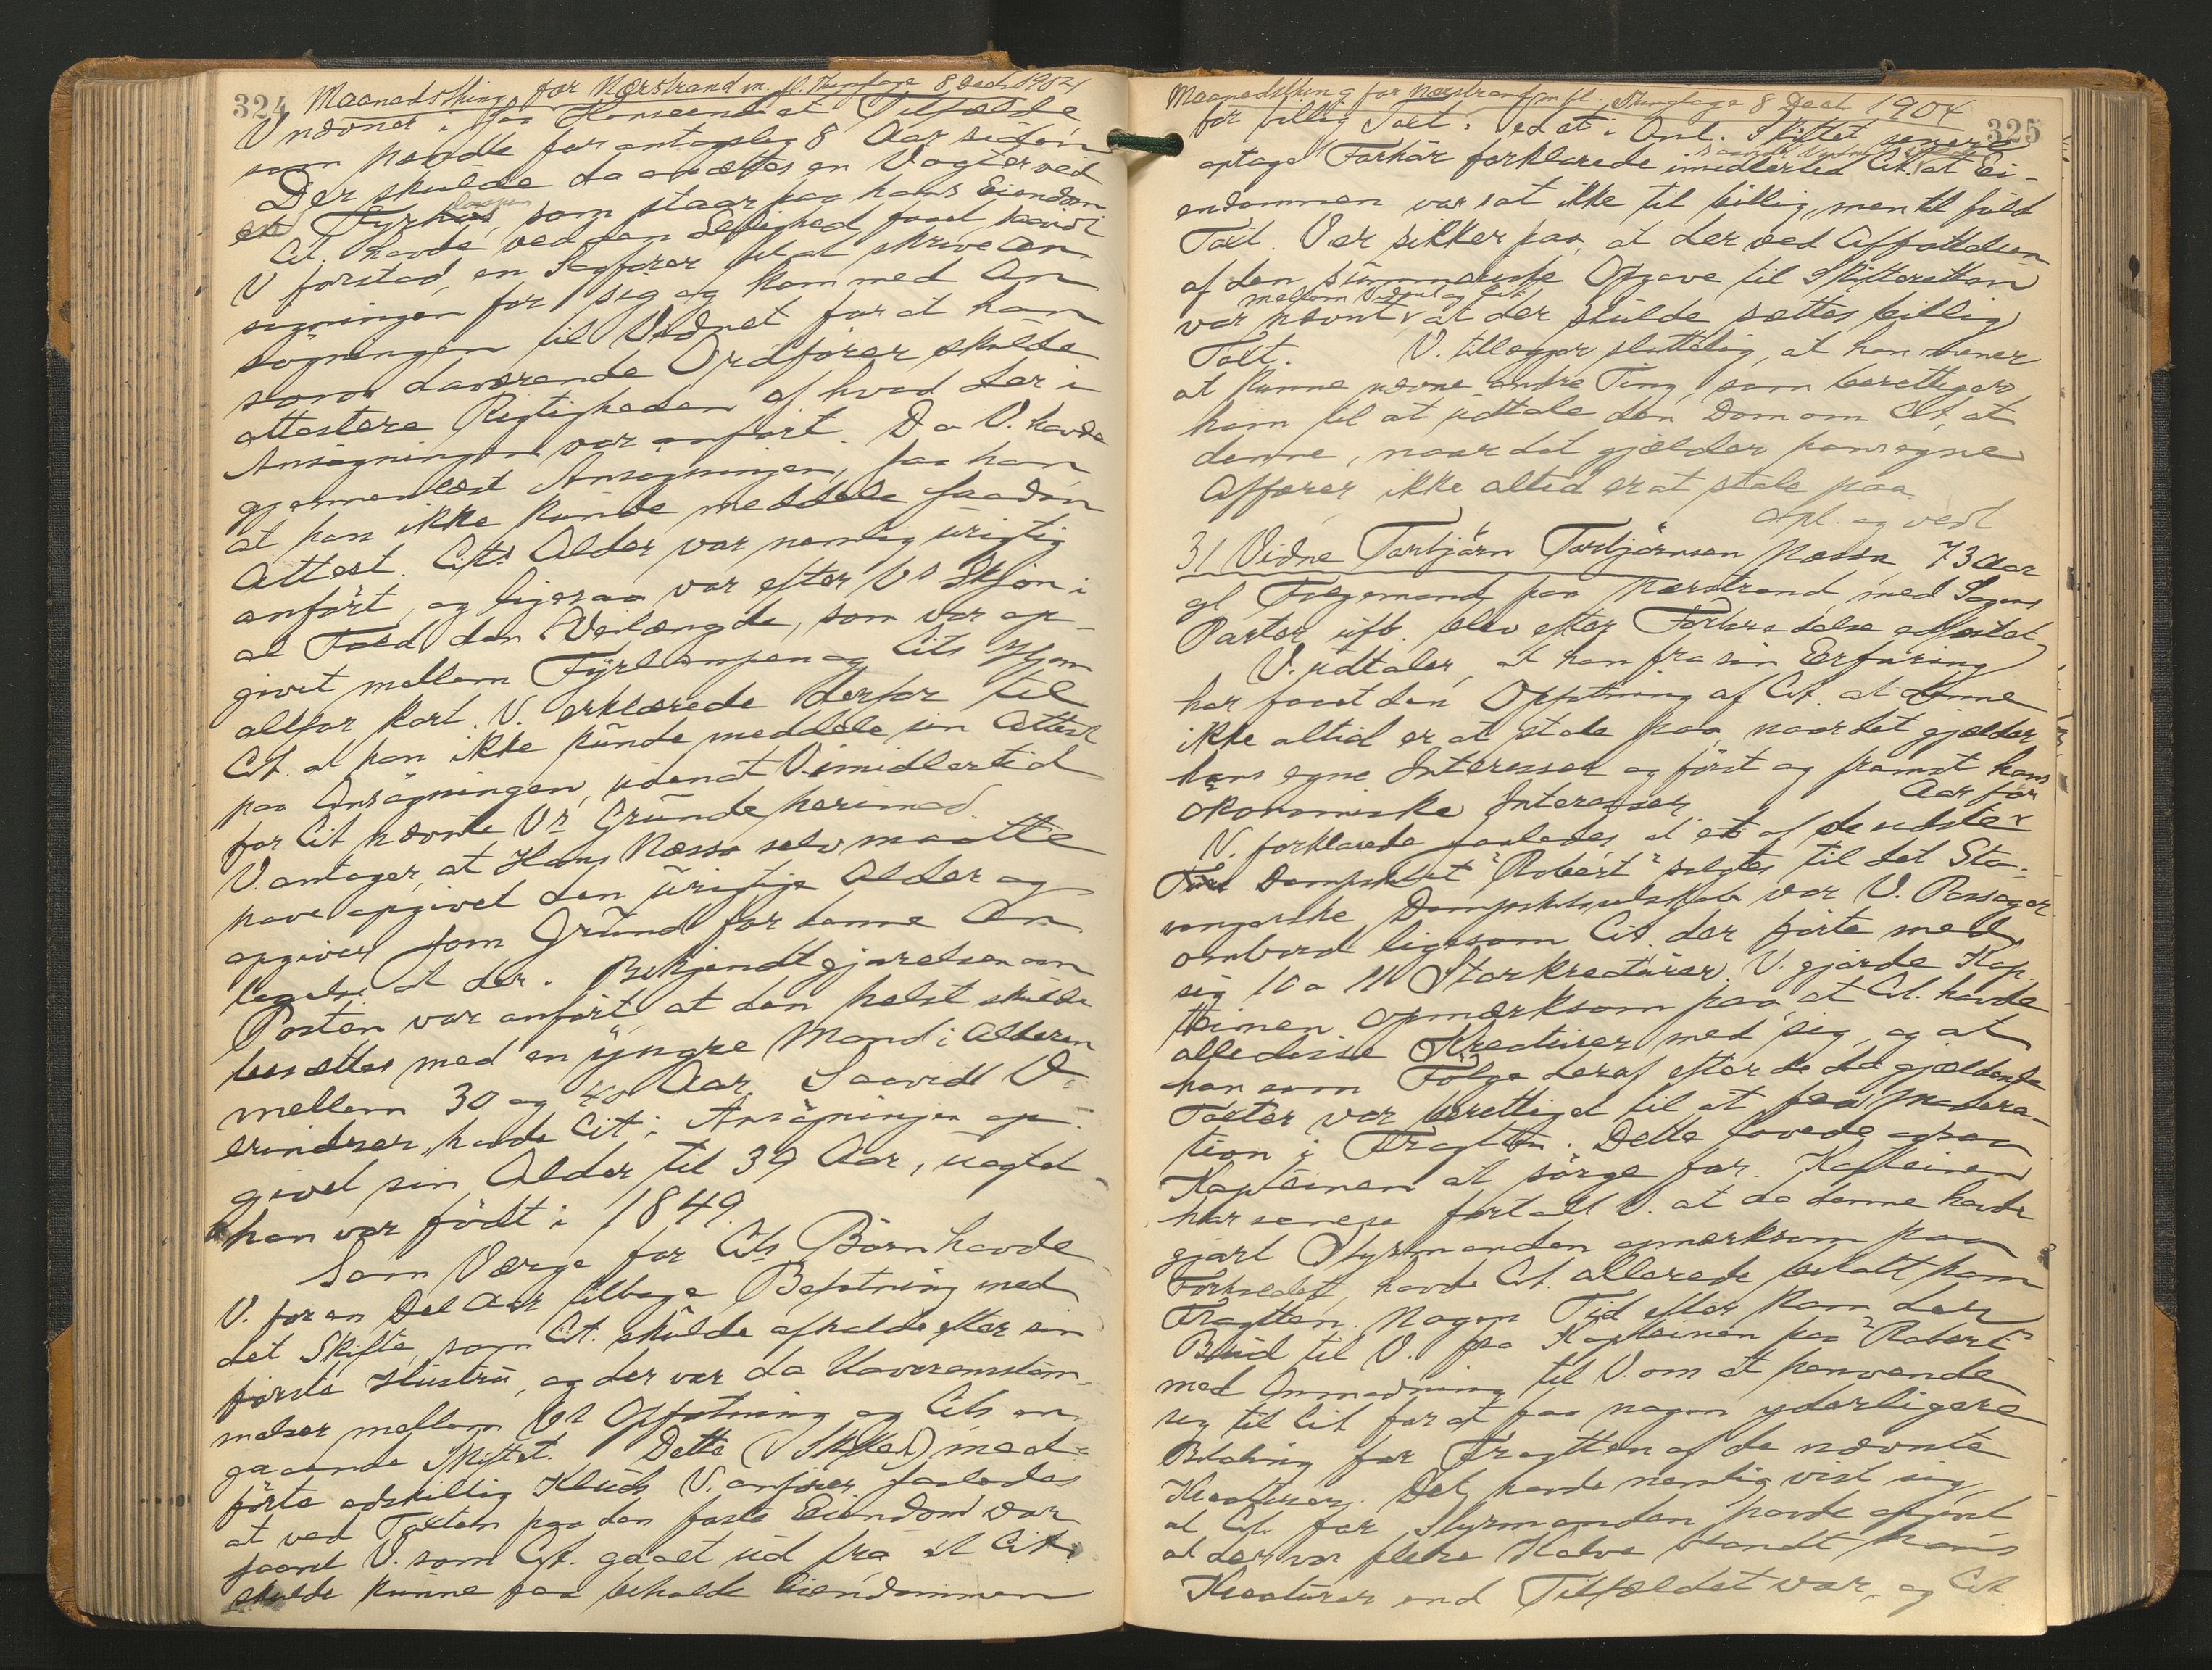 324 Maanedsthing for Nærstrand m. fl. Thinglage 8 Decb. 1904
V nævner i saa Henseende at Tilfælde
som hændte for antagelig 8 Aar siden
Der skulde da ansættes en Vogter ved
lampen
et Fyrhus, som staar paa hans Eiendom
Cit. havde ved den Leilighed faaet, saavidt
V forstod, en Sagfører til at skrive An
søgningen for sig og kom med An
søgningen til Vidnet for at han
som daværende Ordfører skulde
attestere Rigtigheden af hvad der i
Ansøgningen var anført. Da V. havde
gjennemlæst Ansøgningen, saa han
at han ikke kunde meddele saadan
Attest. Cits Alder var nemlig urigtig
anført, og ligesaa var efter Vs Skjøn i
al Fald den Veilængde, som var op
givet mellem Fyrlampen og Cits Hjem
altfor kort. V. erklærede derfor til
Cit. at han ikke kunde meddele sin Attest
paa Ansøgningen, uden at V. imidlertid
for Cit nævnte Vs Grunde herimod.
V. antager, at Hans Næssa selv maatte
have opgivet den urigtige Alder og
opgiver som Grund for denne An
tagelse at der i Bekjendtgjørelsen om
Posten var anført at den helst skulde
besættes med en yngre Mand i Alderen
mellem 30 og 40 Aar. Saavidt V.
erindrer, havde Cit i Ansøgningen op
givet sin Alder til 39 Aar, uagtet
han var født i 1849.
Som Værge for Cits Børn havde
V. for en Del Aar tilbage Befatning med
det Skifte, som Cit. skulde afholde efter sin
første Hustru, og der var da Uoverensstem
melser mellem Vs Opfatning og Cits an
gaaende Skiftet. Dette (Skiftet) med
førte adskillig Kluds V. anfører saaledes
at ved Taxten paa den faste Eiendom var
saavel V. som Cit. gaaet ud fra at Cit.
skulde kunne faa beholde Eiendommen
Maanedsthing for Nærstrand m fl. Thinglage 8 Decb 1904
325
for billig Taxt. Ved et i Anl. Skiftet senere
optaget Forhør forklarede imidlertid Cit. at Ei-
endommen var sat ikke til billig, men til fuld
Taxt. V er sikker paa, at der ved Affattelsen
af den summariske Opgave til Skifteretten
mellem Vidnet og Cit
var nævnt at der skulde sættes billig
Taxt. V. tillægger sluttelig, at han mener
at kunne nævne andre Ting, som berettiger
ham til at udtale den Dom om Cit, at
denne, naar det gjælder hans egne
Affærer, ikke altid er at stole paa.
Opl. og vedt
31 Vidne Torbjørn Torbjørnsen Næssa 73 Aar
gl Fregemand paa Nærstrand med Sagens
Parter ubb. blev efter Forberedelse edfæstet
V. udtaler, at han fra sin Erfaring
har faaet den Opfatning af Cit. at denne
ikke altid er at stole paa, naar det gjælder
hans egne Interesser og først og fremst hans
økonomiske Interesser
Aar før
V. forklarede saaledes at et af de sidste
Dampskibet "Robert" solgtes til det Sta-
vangerske Dampskibsselskab var V. Passager
ombord ligesom Cit. der førte med
sig 10 a 11 Storkreaturer. V. gjorde Kap
teinen opmærksom paa, at Cit. havde
alle disse Kreaturer med sig, og at
han som Følge deraf efter de da gjældende
Taxter var berettiget til at faa Modera-
tion i Fragten. Dette lovede ogsaa
Kapteinen at sørge for. Kapteinen
har senere fortalt V. at da denne havde
gjort Styrmanden opmærksom paa
Forholdet, havde Cit. allerede betalt ham
Fragten. Nogen Tid efter kom der
Bud til V. fra Kapteinen paa "Robert"
med Anmodning til V. om at henvende
sig til Cit for at faa nogen yderligere
Betaling for Fragten af de nævnte
Kreaturer. Det havde nemlig vist sig
at Cit. for Styrmanden havde opgivet
at der var flere Kalve blandt hans
Kreaturer end Tilfældet var, og Cit.